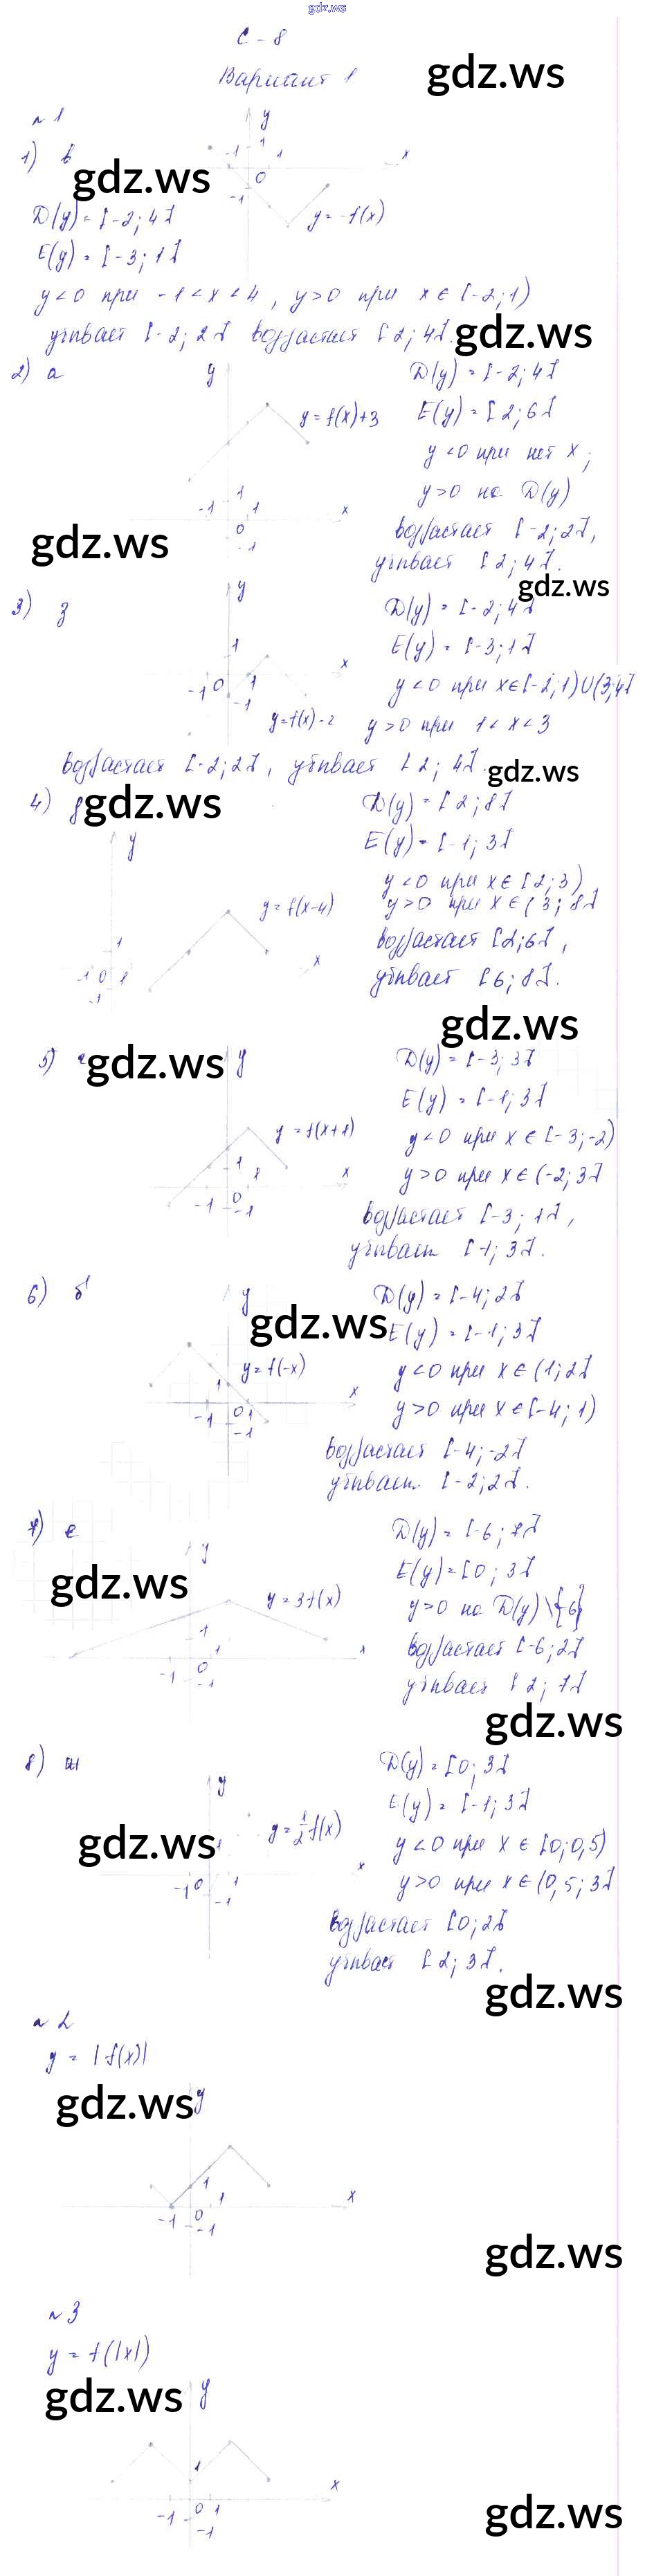 gdz.ws
С - 8
Вариант 1
gdz.ws
№ 1
1) в
gdz.ws
y
x
-1 1 1
0
-1
y = -f(x)
D(y) = [-2; 4]
E(y) = [-3; 1]
y < 0 при -1 < x < 4, y > 0 при x ∈ [-2; 1)
убывает [-2; 2] возрастает [2; 4].
gdz.ws
2) а
y
y = f(x)+3
1
-1 1
x
0
-1
D(y) = [-2; 4]
E(y) = [2; 6]
y < 0 при нет x;
y > 0 на D(y)
возрастает [-2; 2],
убывает [2; 4].
gdz.ws
gdz.ws
3) з
y
1
x
-1 0 1
-1
y = f(x) - 2
D(y) = [-2; 4]
E(y) = [-3; 1]
y < 0 при x ∈ [-2; 1) ∪ (3; 4]
y > 0 при 1 < x < 3
возрастает [-2; 2], убывает [2; 4].
gdz.ws
4)
gdz.ws
y
y = f(x-4)
1
-1 0 1
-1
x
D(y) = [2; 8]
E(y) = [-1; 3]
y < 0 при x ∈ [2; 3)
y > 0 при x ∈ (3; 8]
возрастает [2; 6],
убывает [6; 8].
gdz.ws
5)
gdz.ws
y
y = f(x+1)
1
1
x
-1 0
-1
D(y) = [-3; 3]
E(y) = [-1; 3]
y < 0 при x ∈ [-3; -2)
y > 0 при x ∈ (-2; 3]
возрастает [-3; 1],
убывает [-1; 3].
6) б
y
gdz.ws
y = f(-x)
1
x
-1 0 1
-1
D(y) = [-4; 2]
E(y) = [-1; 3]
y < 0 при x ∈ (1; 2]
y > 0 при x ∈ [-4; 1)
возрастает [-4; -2]
убывает [-2; 2].
7) е
y
gdz.ws
y = 3f(x)
1
1
-1 0
-1
D(y) = [-6; 7]
E(y) = [0; 3]
y > 0 на D(y) \ {6}
возрастает [-6; 2]
убывает [2; 7]
gdz.ws
8)
y
gdz.ws
y = 1/2 f(x)
1
x
-1 0 1
-1
D(y) = [0; 3]
E(y) = [-1; 3]
y < 0 при x ∈ [0; 0,5)
y > 0 при x ∈ (0,5; 3]
возрастает [0; 2]
убывает [2; 3].
gdz.ws
№ 2
y = |f(x)|
gdz.ws
y
1
1
x
-1 0
-1
gdz.ws
№ 3
y = f(|x|)
gdz.ws
y
1
x
-1 0 1
-1
gdz.ws